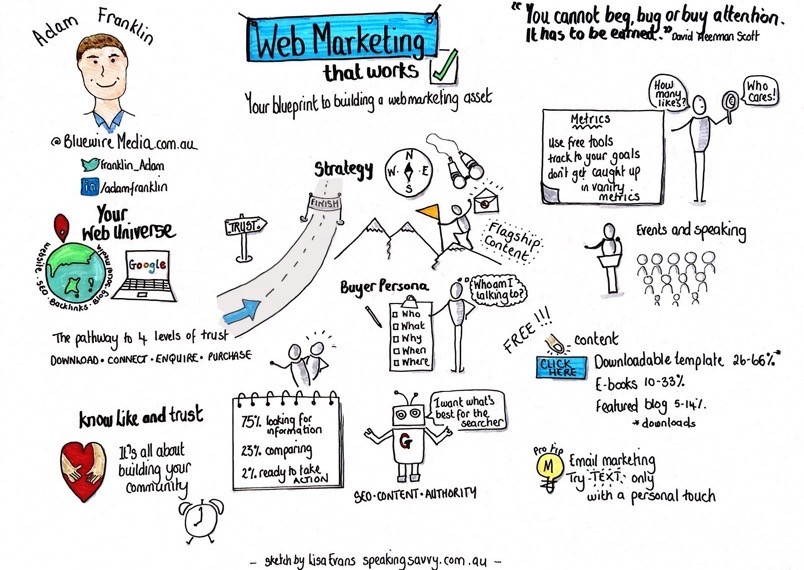 Adam Franklin
@BluewireMedia.com.au
franklin_Adam
in/adamfranklin
Web Marketing
that works
Your blueprint to building a web marketing asset
"You cannot beg, bug or buy attention.
It has to be earned." David Meerman Scott
Metrics
Use free tools
track to your goals
don't get caught up
in vanity
metrics
How
many
likes?
Who
Cares!
Strategy
N
W E
S
FINISH
TRUST
Flagship
Content
Your
Web Universe
Google
website · SEO · Backlinks · Blog · social media
The pathway to 4 levels of trust
DOWNLOAD · CONNECT · ENQUIRE · PURCHASE
Buyer Persona
Who
What
Why
When
Where
Who am I
talking to?
Events and speaking
FREE!!!
content
CLICK
HERE
Downloadable template 26-66%*
E-books 10-33%
Featured blog 5-14%
*downloads
Know like and trust
It's all about
building your
community
75% looking for
information
23% comparing
2% ready to take
ACTION
I want what's
best for the
searcher
G
SEO · CONTENT · AUTHORITY
Pro tip
M
Email marketing
Try TEXT only
with a personal touch
- sketch by Lisa Evans speakingsavvy.com.au -